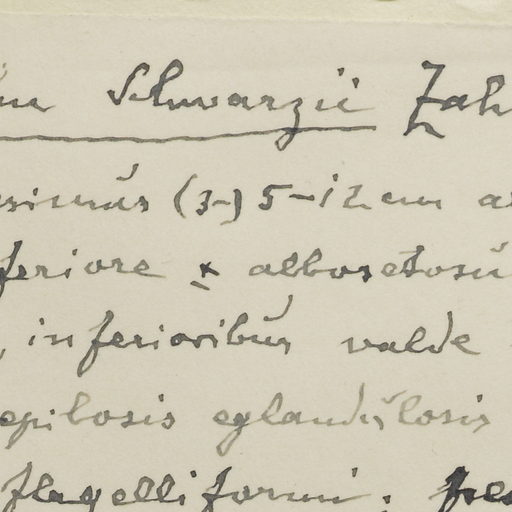 Schwarzii Zah
(3-) 5-12 cm
feriore ± albosetosů
, inferioribůs valde
epilosis eglandůlosis
flagelliformi ;